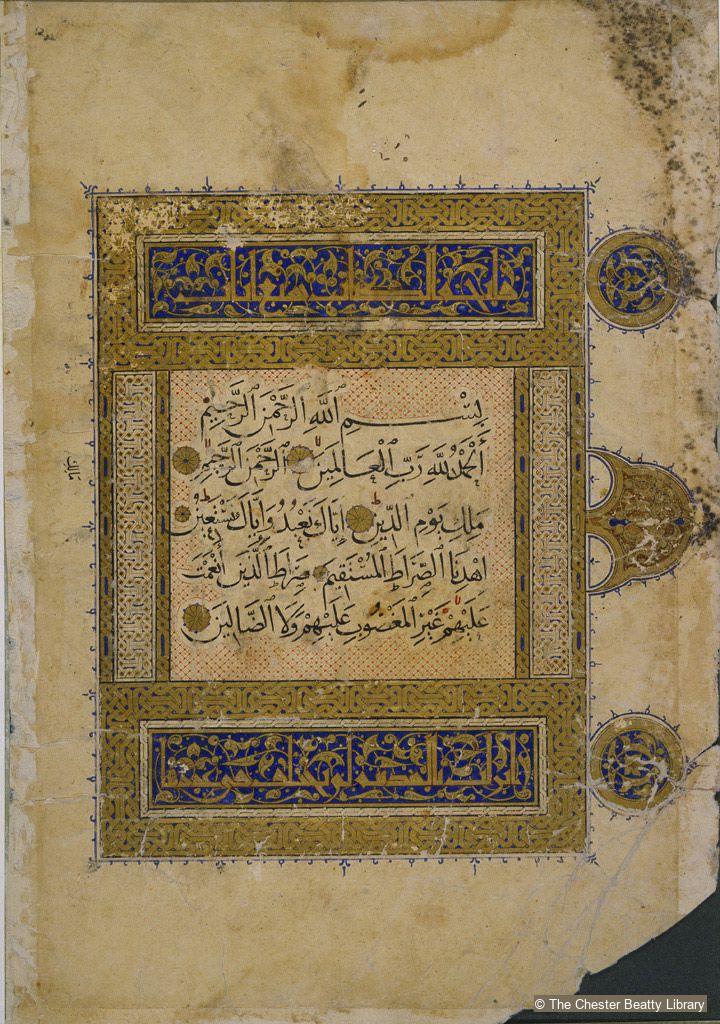 بِسْمِ ٱللَّهِ ٱلرَّحْمَنِ ٱلرَّحِيمِ
أَلْحَمْدُ لِلَّهِ رَبِّ ٱلْعَالَمِينَ ٱلرَّحْمَنِ ٱلرَّحِيمِ
مَلِكِ يَوْمِ ٱلدِّينِ إِيَّاكَ نَعْبُدُ وَإِيَّاكَ نَسْتَعِينُ
اهْدِنَا ٱلصِّرَاطَ ٱلْمُسْتَقِيمَ صِرَاطَ ٱلَّذِينَ أَنْعَمْتَ
عَلَيْهِمْ غَيْرِ ٱلْمَغْضُوبِ عَلَيْهِمْ وَلَا ٱلضَّالِّينَ
© The Chester Beatty Library